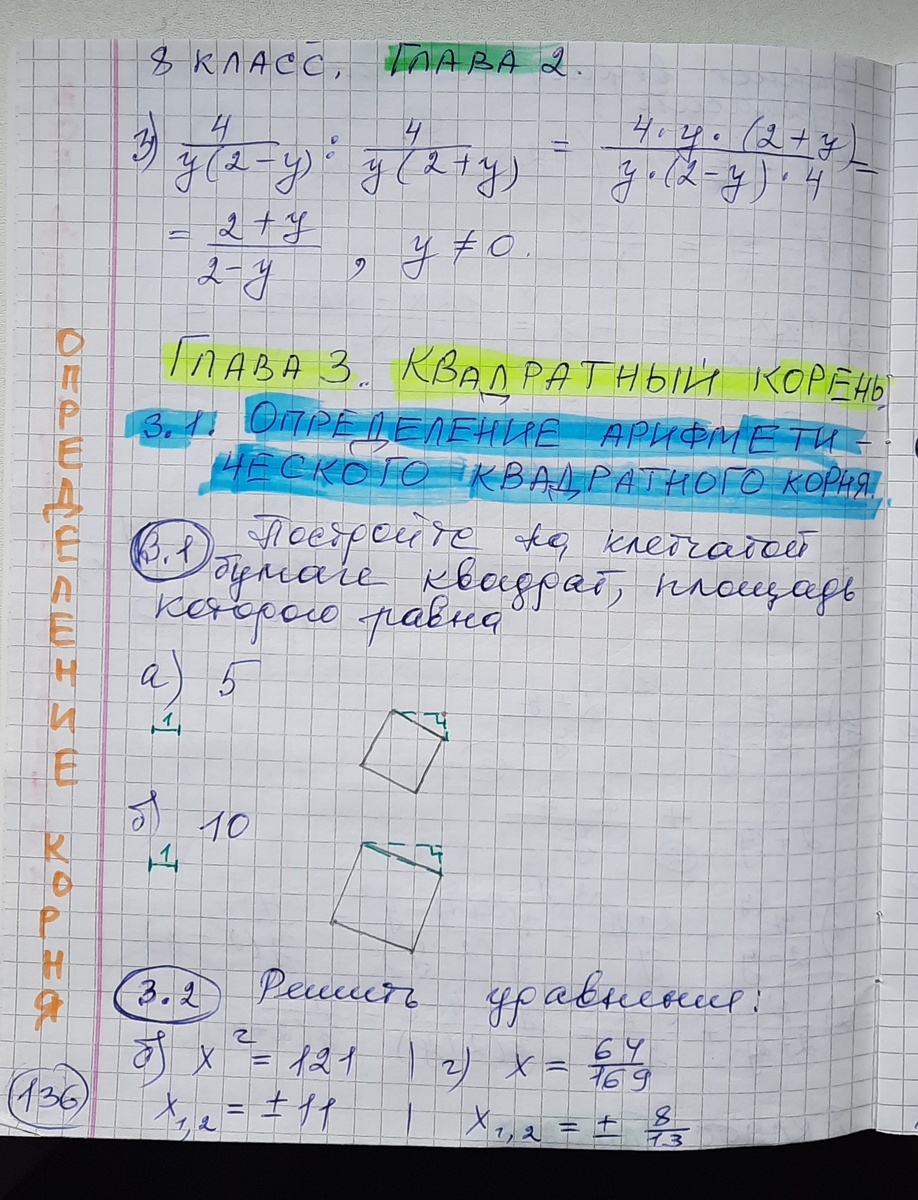 8 КЛАСС. ГЛАВА 2.
з) 4/(y(2-y)) : 4/(y(2+y)) = (4·y·(2+y))/(y·(2-y)·4) =
= (2+y)/(2-y), y ≠ 0.
ГЛАВА 3. КВАДРАТНЫЙ КОРЕНЬ
3.1. ОПРЕДЕЛЕНИЕ АРИФМЕТИ-
ЧЕСКОГО КВАДРАТНОГО КОРНЯ.
3.1 Постройте на клетчатой
бумаге квадрат, площадь
которого равна
а) 5
1
б) 10
1
3.2 Решить уравнения:
б) x² = 121 | г) x = 64/169
x₁,₂ = ±11 | x₁,₂ = ± 8/13
ОПРЕДЕЛЕНИЕ КОРНЯ
136